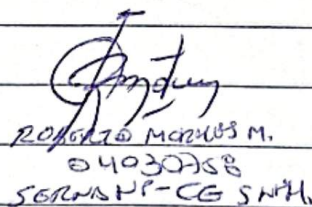 ROBERTO MORALES M.
04030758
SERNANP-CG SNPH.